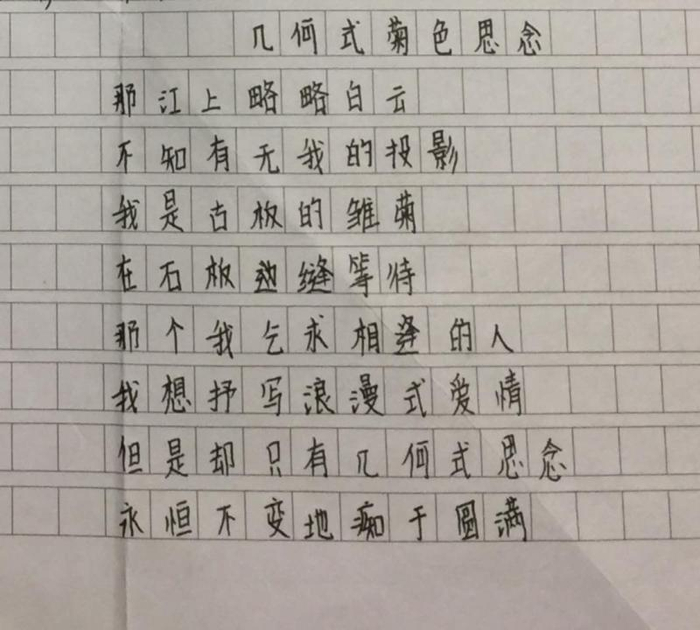 几何式菊色思念
那江上略略白云
不知有无我的投影
我是古板的雏菊
在石板边缝等待
那个我乞求相逢的人
我想抒写浪漫式爱情
但是却只有几何式思念
永恒不变地痴于圆满